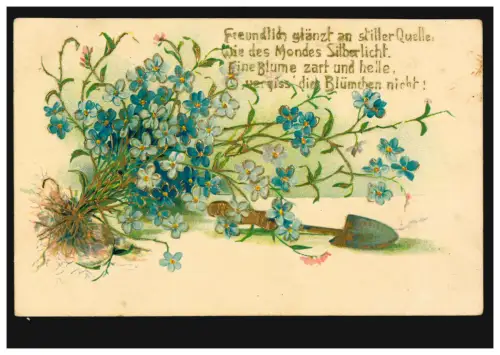 Freundlich glänzt an stiller Quelle,
Wie des Mondes Silberlicht.
Eine Blume zart und helle,
O vergiss dies Blümchen nicht!